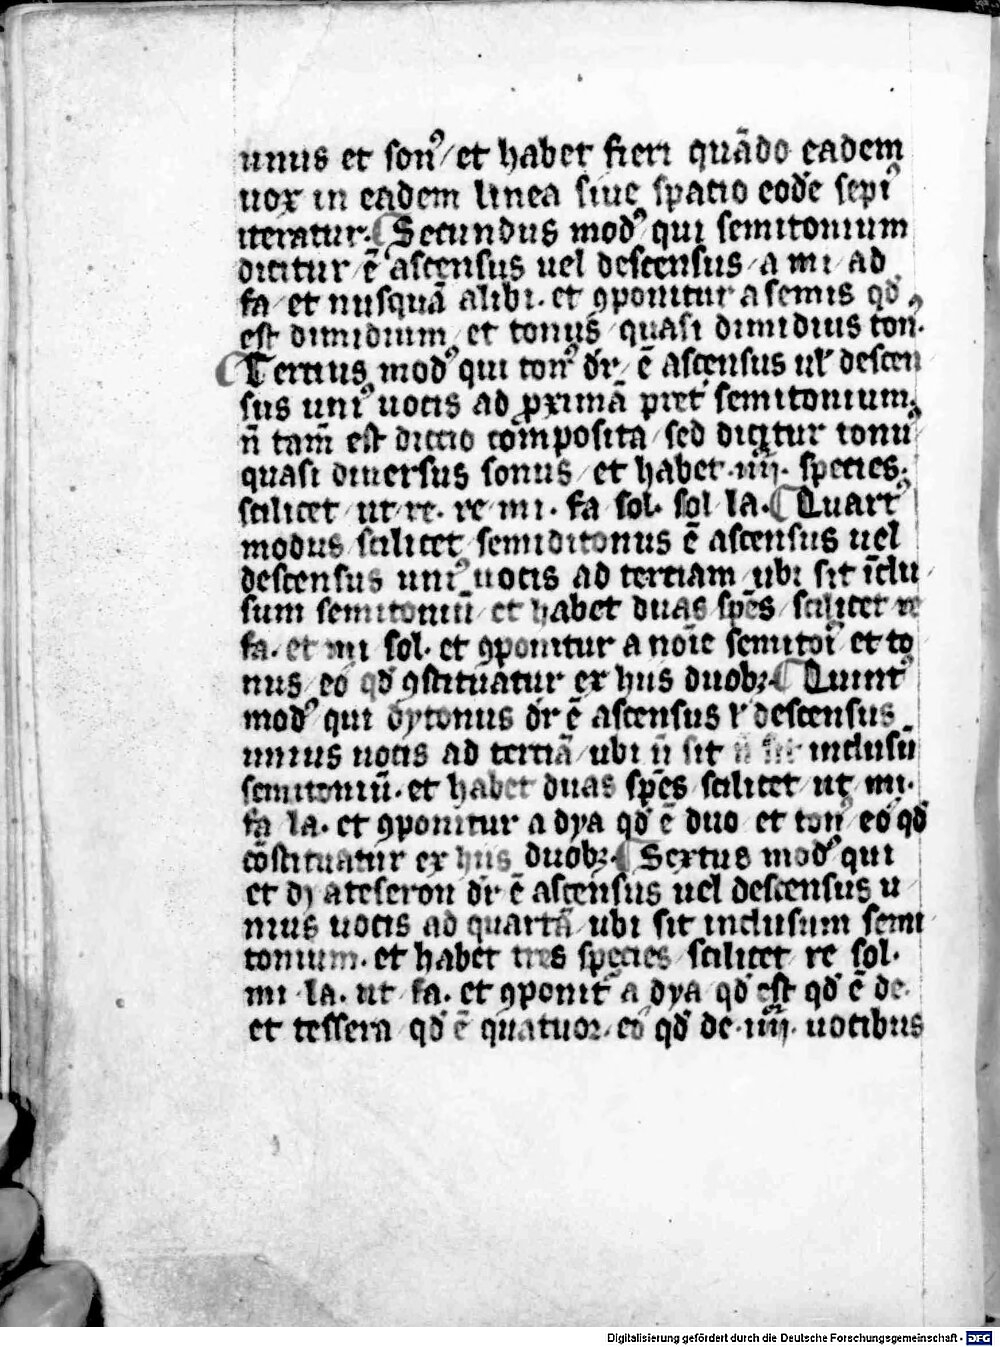 unus et son⁹ / et habet fieri quādo eadem
uox in eadem linea siue spatio eodē sepi⁹
iteratur. Secundus mod⁹ qui semitonium
dicitur / ē ascensus uel descensus / a mi / ad
fa / et nusquā alibi. et ꝯponitur a semis qđ
est dimidium / et tonus / quasi dimidius ton⁹.
Tertius mod⁹ qui ton⁹ dr̄ / ē ascensus ul̓ descen
sus uni⁹ uocis ad ꝓximā pret̓ semitonium.
n̄ tam̄ est dictio composita / sed dicitur tonu⁹
quasi diuersus sonus / et habet .iiij. species.
scilicet / ut / re. re mi. fa sol. sol la. Quart⁹
modus scilicet semiditonus ē ascensus uel
descensus uni⁹ uocis ad tertiam / ubi sit īclu
sum semitoniū / et habet duas spēs / scilicet re
fa. et mi sol. et ꝯponitur a noīe semitoī et to
nus / eo qđ ꝯstituatur ex hijs duobꝫ. Quint⁹
mod⁹ qui dytonus dr̄ ē ascensus l̓ descensus
unius uocis ad tertiā / ubi n̄ sit inclusū
semitoniū. et habet duas spēs scilicet ut mi.
fa la. et ꝯponitur a dya qđ ē duo et ton⁹ eo qđ
cōstituatur ex hijs duobꝫ. Sextus mod⁹ qui
et dyateseron dr̄ ē ascensus uel descensus u
nius uocis ad quartā / ubi sit inclusum semi
tonium. et habet tres species / scilicet re sol.
mi la. ut fa. et ꝯponit̓ a dya qđ est qđ ē de.
et tessera qđ ē quatuor. eo qđ de .iiij. uocibus
Digitalisierung gefördert durch die Deutsche Forschungsgemeinschaft - DFG